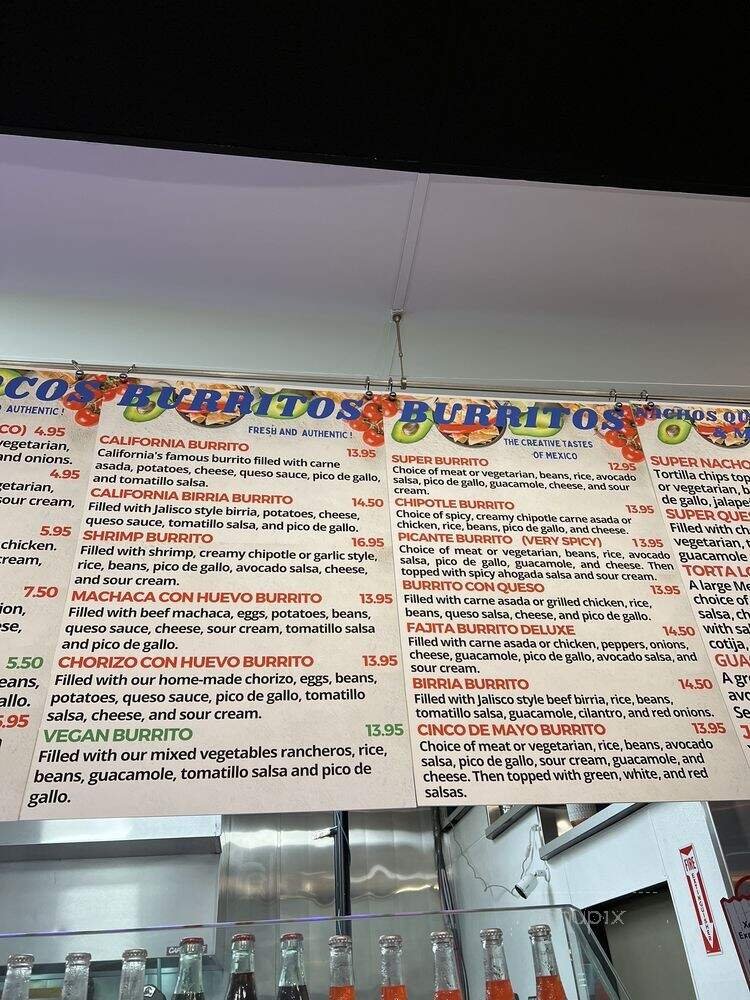 COS
AUTHENTIC!
CO) 4.95
vegetarian,
and onions.
4.95
etarian,
sour cream,
5.95
chicken.
cream,
7.50
ion,
ese,
5.50
eans,
allo.
5.95
BURRITOS
FRESH AND AUTHENTIC!
CALIFORNIA BURRITO 13.95
California's famous burrito filled with carne
asada, potatoes, cheese, queso sauce, pico de gallo,
and tomatillo salsa.
CALIFORNIA BIRRIA BURRITO 14.50
Filled with Jalisco style birria, potatoes, cheese,
queso sauce, tomatillo salsa, and pico de gallo.
SHRIMP BURRITO 16.95
Filled with shrimp, creamy chipotle or garlic style,
rice, beans, pico de gallo, avocado salsa, cheese,
and sour cream.
MACHACA CON HUEVO BURRITO 13.95
Filled with beef machaca, eggs, potatoes, beans,
queso sauce, cheese, sour cream, tomatillo salsa
and pico de gallo.
CHORIZO CON HUEVO BURRITO 13.95
Filled with our home-made chorizo, eggs, beans,
potatoes, queso sauce, pico de gallo, tomatillo
salsa, cheese, and sour cream.
VEGAN BURRITO 13.95
Filled with our mixed vegetables rancheros, rice,
beans, guacamole, tomatillo salsa and pico de
gallo.
BURRITOS
THE CREATIVE TASTES
OF MEXICO
SUPER BURRITO 12.95
Choice of meat or vegetarian, beans, rice, avocado
salsa, pico de gallo, guacamole, cheese, and sour
cream.
CHIPOTLE BURRITO 13.95
Choice of spicy, creamy chipotle carne asada or
chicken, rice, beans, pico de gallo, and cheese.
PICANTE BURRITO (VERY SPICY) 13.95
Choice of meat or vegetarian, beans, rice, avocado
salsa, pico de gallo, guacamole, and cheese. Then
topped with spicy ahogada salsa and sour cream.
BURRITO CON QUESO 13.95
Filled with carne asada or grilled chicken, rice,
beans, queso salsa, cheese, and pico de gallo.
FAJITA BURRITO DELUXE 14.50
Filled with carne asada or chicken, peppers, onions,
cheese, guacamole, pico de gallo, avocado salsa, and
sour cream.
BIRRIA BURRITO 14.50
Filled with Jalisco style beef birria, rice, beans,
tomatillo salsa, guacamole, cilantro, and red onions.
CINCO DE MAYO BURRITO 13.95
Choice of meat or vegetarian, rice, beans, avocado
salsa, pico de gallo, sour cream, guacamole, and
cheese. Then topped with green, white, and red
salsas.
NACHOS QU
& M
SUPER NACHO
Tortilla chips top
or vegetarian, b
de gallo, jalape
SUPER QUE
Filled with ch
vegetarian, t
guacamole
TORTA LO
A large Me
choice of
salsa, ch
with sal
cotija,
GUA
A gr
avo
Se
J
FIRE EXTINGUISHER